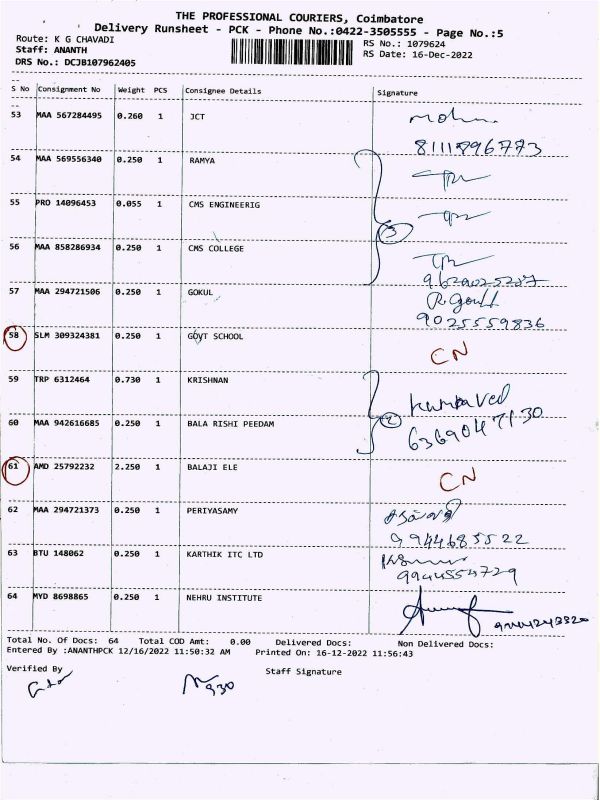 THE PROFESSIONAL COURIERS, Coimbatore
Delivery Runsheet - PCK - Phone No.:0422-3505555 - Page No.:5
Route: K G CHAVADI
RS No.: 1079624
Staff: ANANTH
RS Date: 16-Dec-2022
DRS No.: DCJB107962405
S No Consignment No Weight PCS Consignee Details Signature
53 MAA 567284495 0.260 1 JCT
8111896773
54 MAA 569556340 0.250 1 RAMYA
55 PRO 14096453 0.055 1 CMS ENGINEERIG
3
56 MAA 858286934 0.250 1 CMS COLLEGE
57 MAA 294721506 0.250 1 GOKUL
9025559836
58 SLM 309324381 0.250 1 GOVT SCHOOL CN
59 TRP 6312464 0.730 1 KRISHNAN
2
60 MAA 942616685 0.250 1 BALA RISHI PEEDAM 6369047130
61 AMD 25792232 2.250 1 BALAJI ELE CN
62 MAA 294721373 0.250 1 PERIYASAMY
9944685522
63 BTU 148062 0.250 1 KARTHIK ITC LTD
9944554729
64 MYD 8698865 0.250 1 NEHRU INSTITUTE
Total No. Of Docs: 64 Total COD Amt: 0.00 Delivered Docs: Non Delivered Docs:
Entered By :ANANTHPCK 12/16/2022 11:50:32 AM Printed On: 16-12-2022 11:56:43
Verified By Staff Signature